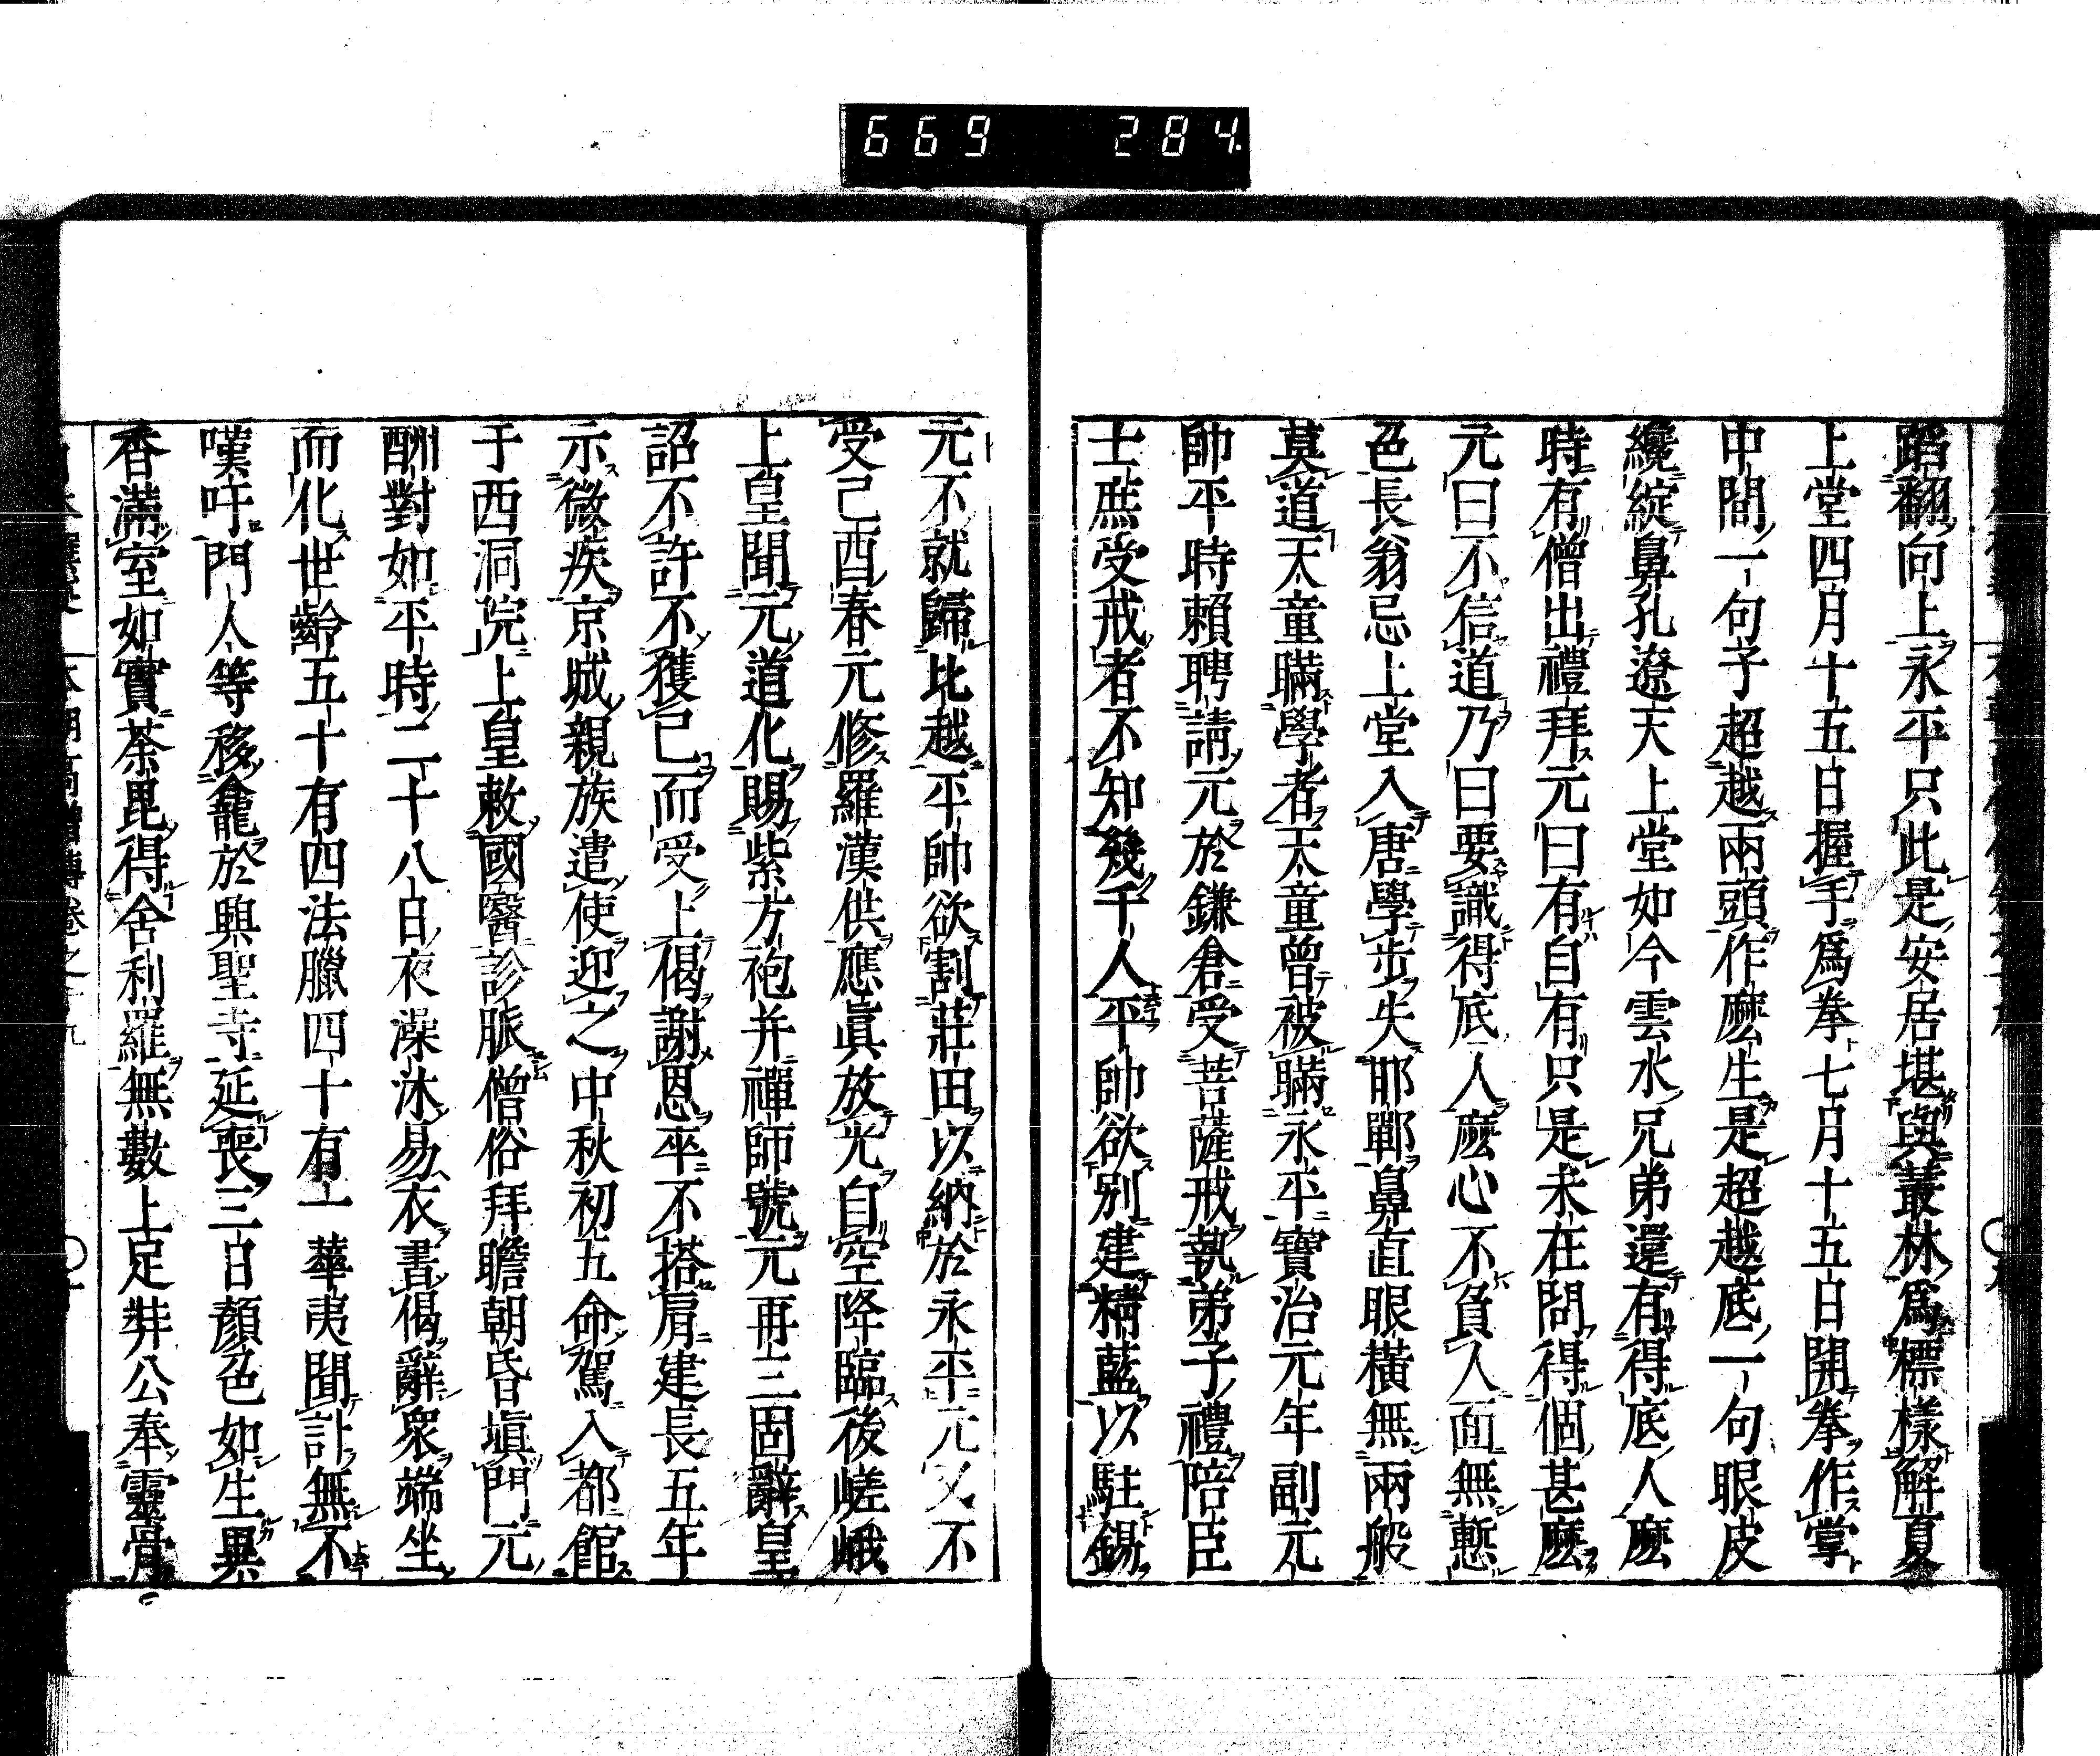 669 284
蹈翻向上永平只此是安居堪與叢林爲標樣解夏
上堂四月十五日握手爲拳七月十五日開拳作掌
中間一句子超越兩頭作麽生是超越底一句眼皮
纔綻鼻孔遼天上堂如今雲水兄弟還有得底人麽
時有僧出禮拜元曰有自有只是未在問得個甚麽
元曰不信道乃曰要識得底人麽心不負人面無慙
色長翁忌上堂入唐學步失邯鄲鼻直眼橫無兩般
莫道天童瞞學者天童曾被瞞永平寶治元年副元
帥平時賴聘請元於鎌倉受菩薩戒執弟子禮陪臣
士庶受戒者不知幾千人平帥欲別建精藍以駐錫
元不就歸比越平帥欲割莊田以納於永平元又不
受己酉春元修羅漢供應眞放光自空降臨後嵯峨
上皇聞元道化賜紫方袍并禪師號元再三固辭皇
詔不許不獲已而受上偈謝恩卒不搭肩建長五年
示微疾京城親族遣使迎之中秋初五命駕入都館
于西洞院上皇敕國醫診脈僧俗拜瞻朝昏塡門元
酬對如平時二十八日夜澡沐易衣書偈辭衆端坐
而化世齡五十有四法臘四十有一華夷聞訃無不
嘆吁門人等移龕於興聖寺延喪三日顏色如生異
香滿室如實荼毘得舍利羅無數上足弉公奉靈骨
本朝高僧傳卷之十九